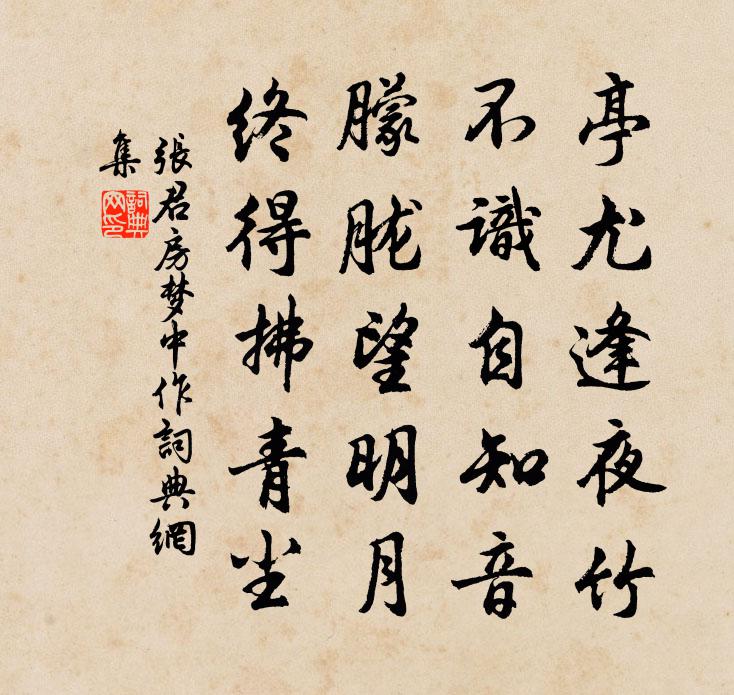 亭尤逢夜竹
不識自知音
朦胧望明月
終得拂青尘
張君房梦中作詞典網
集
詞典
网印